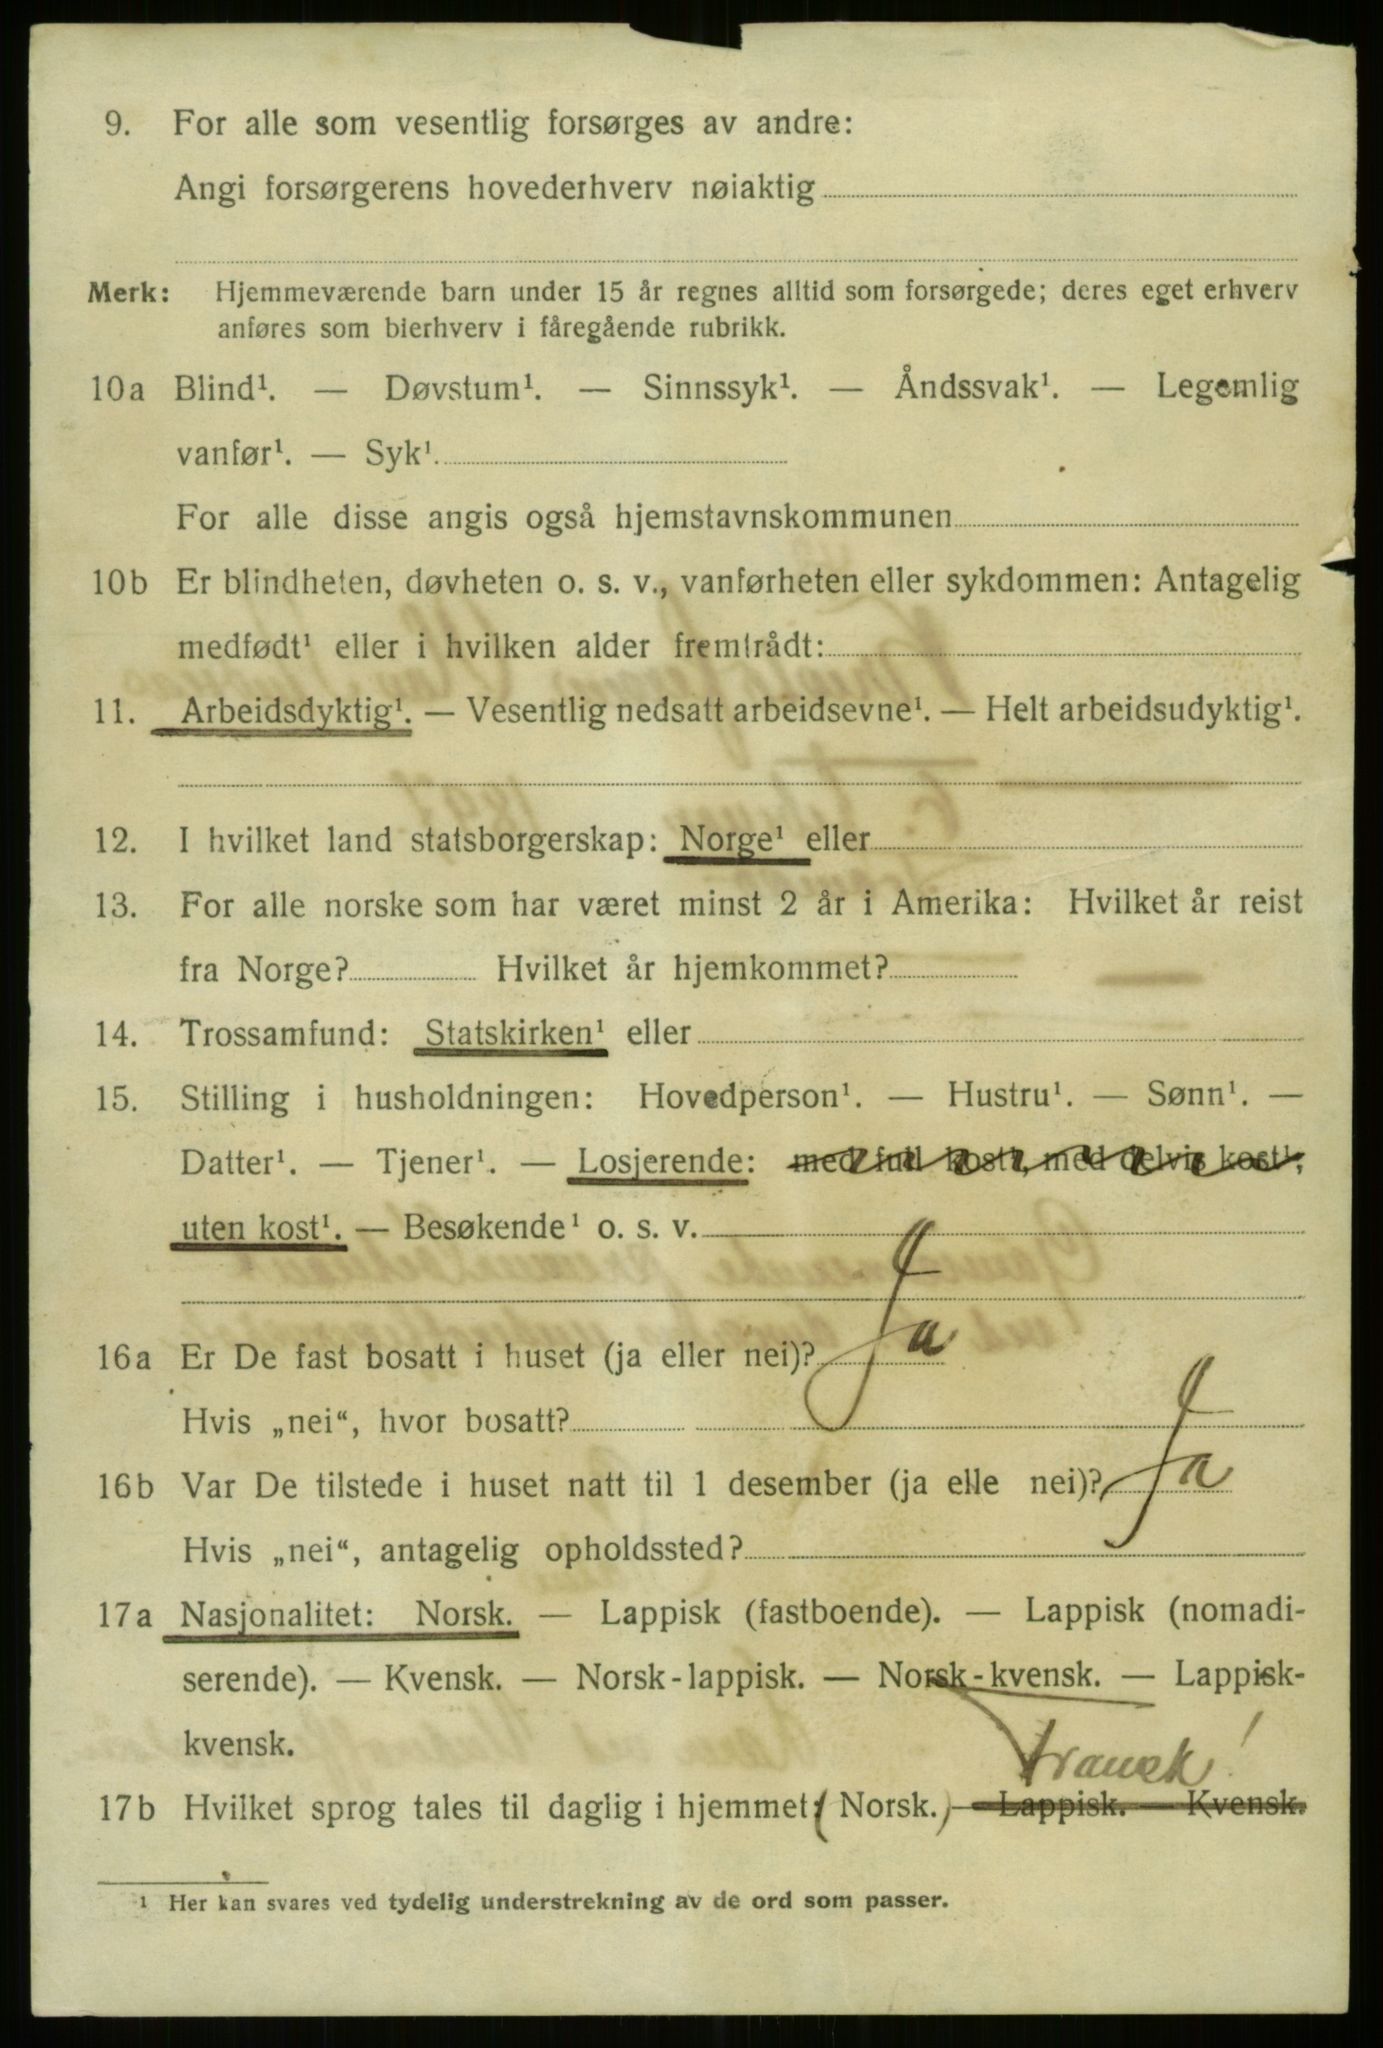 9. For alle som vesentlig forsørges av andre:
Angi forsørgerens hovederhverv nøiaktig
Merk: Hjemmeværende barn under 15 år regnes alltid som forsørgede; deres eget erhverv
anføres som bierhverv i fåregående rubrikk.
10a Blind¹. — Døvstum¹. — Sinnssyk¹. — Åndssvak¹. — Legemlig
vanfør¹. — Syk¹.
For alle disse angis også hjemstavnskommunen
10b Er blindheten, døvheten o. s. v., vanførheten eller sykdommen: Antagelig
medfødt¹ eller i hvilken alder fremtrådt:
11. Arbeidsdyktig¹. — Vesentlig nedsatt arbeidsevne¹. — Helt arbeidsudyktig¹.
12. I hvilket land statsborgerskap: Norge¹ eller
13. For alle norske som har været minst 2 år i Amerika: Hvilket år reist
fra Norge? Hvilket år hjemkommet?
14. Trossamfund: Statskirken¹ eller
15. Stilling i husholdningen: Hovedperson¹. — Hustru¹. — Sønn¹. —
Datter¹. — Tjener¹. — Losjerende: med full kost¹, med delvis kost¹,
uten kost¹. — Besøkende¹ o. s. v.
16a Er De fast bosatt i huset (ja eller nei)? Ja
Hvis „nei“, hvor bosatt?
16b Var De tilstede i huset natt til 1 desember (ja elle nei)? Ja
Hvis „nei“, antagelig opholdssted?
17a Nasjonalitet: Norsk. — Lappisk (fastboende). — Lappisk (nomadi-
serende). — Kvensk. — Norsk-lappisk. — Norsk-kvensk. — Lappisk-
kvensk.
17b Hvilket sprog tales til daglig i hjemmet: (Norsk.) — Lappisk. — Kvensk.
¹ Her kan svares ved tydelig understrekning av de ord som passer.